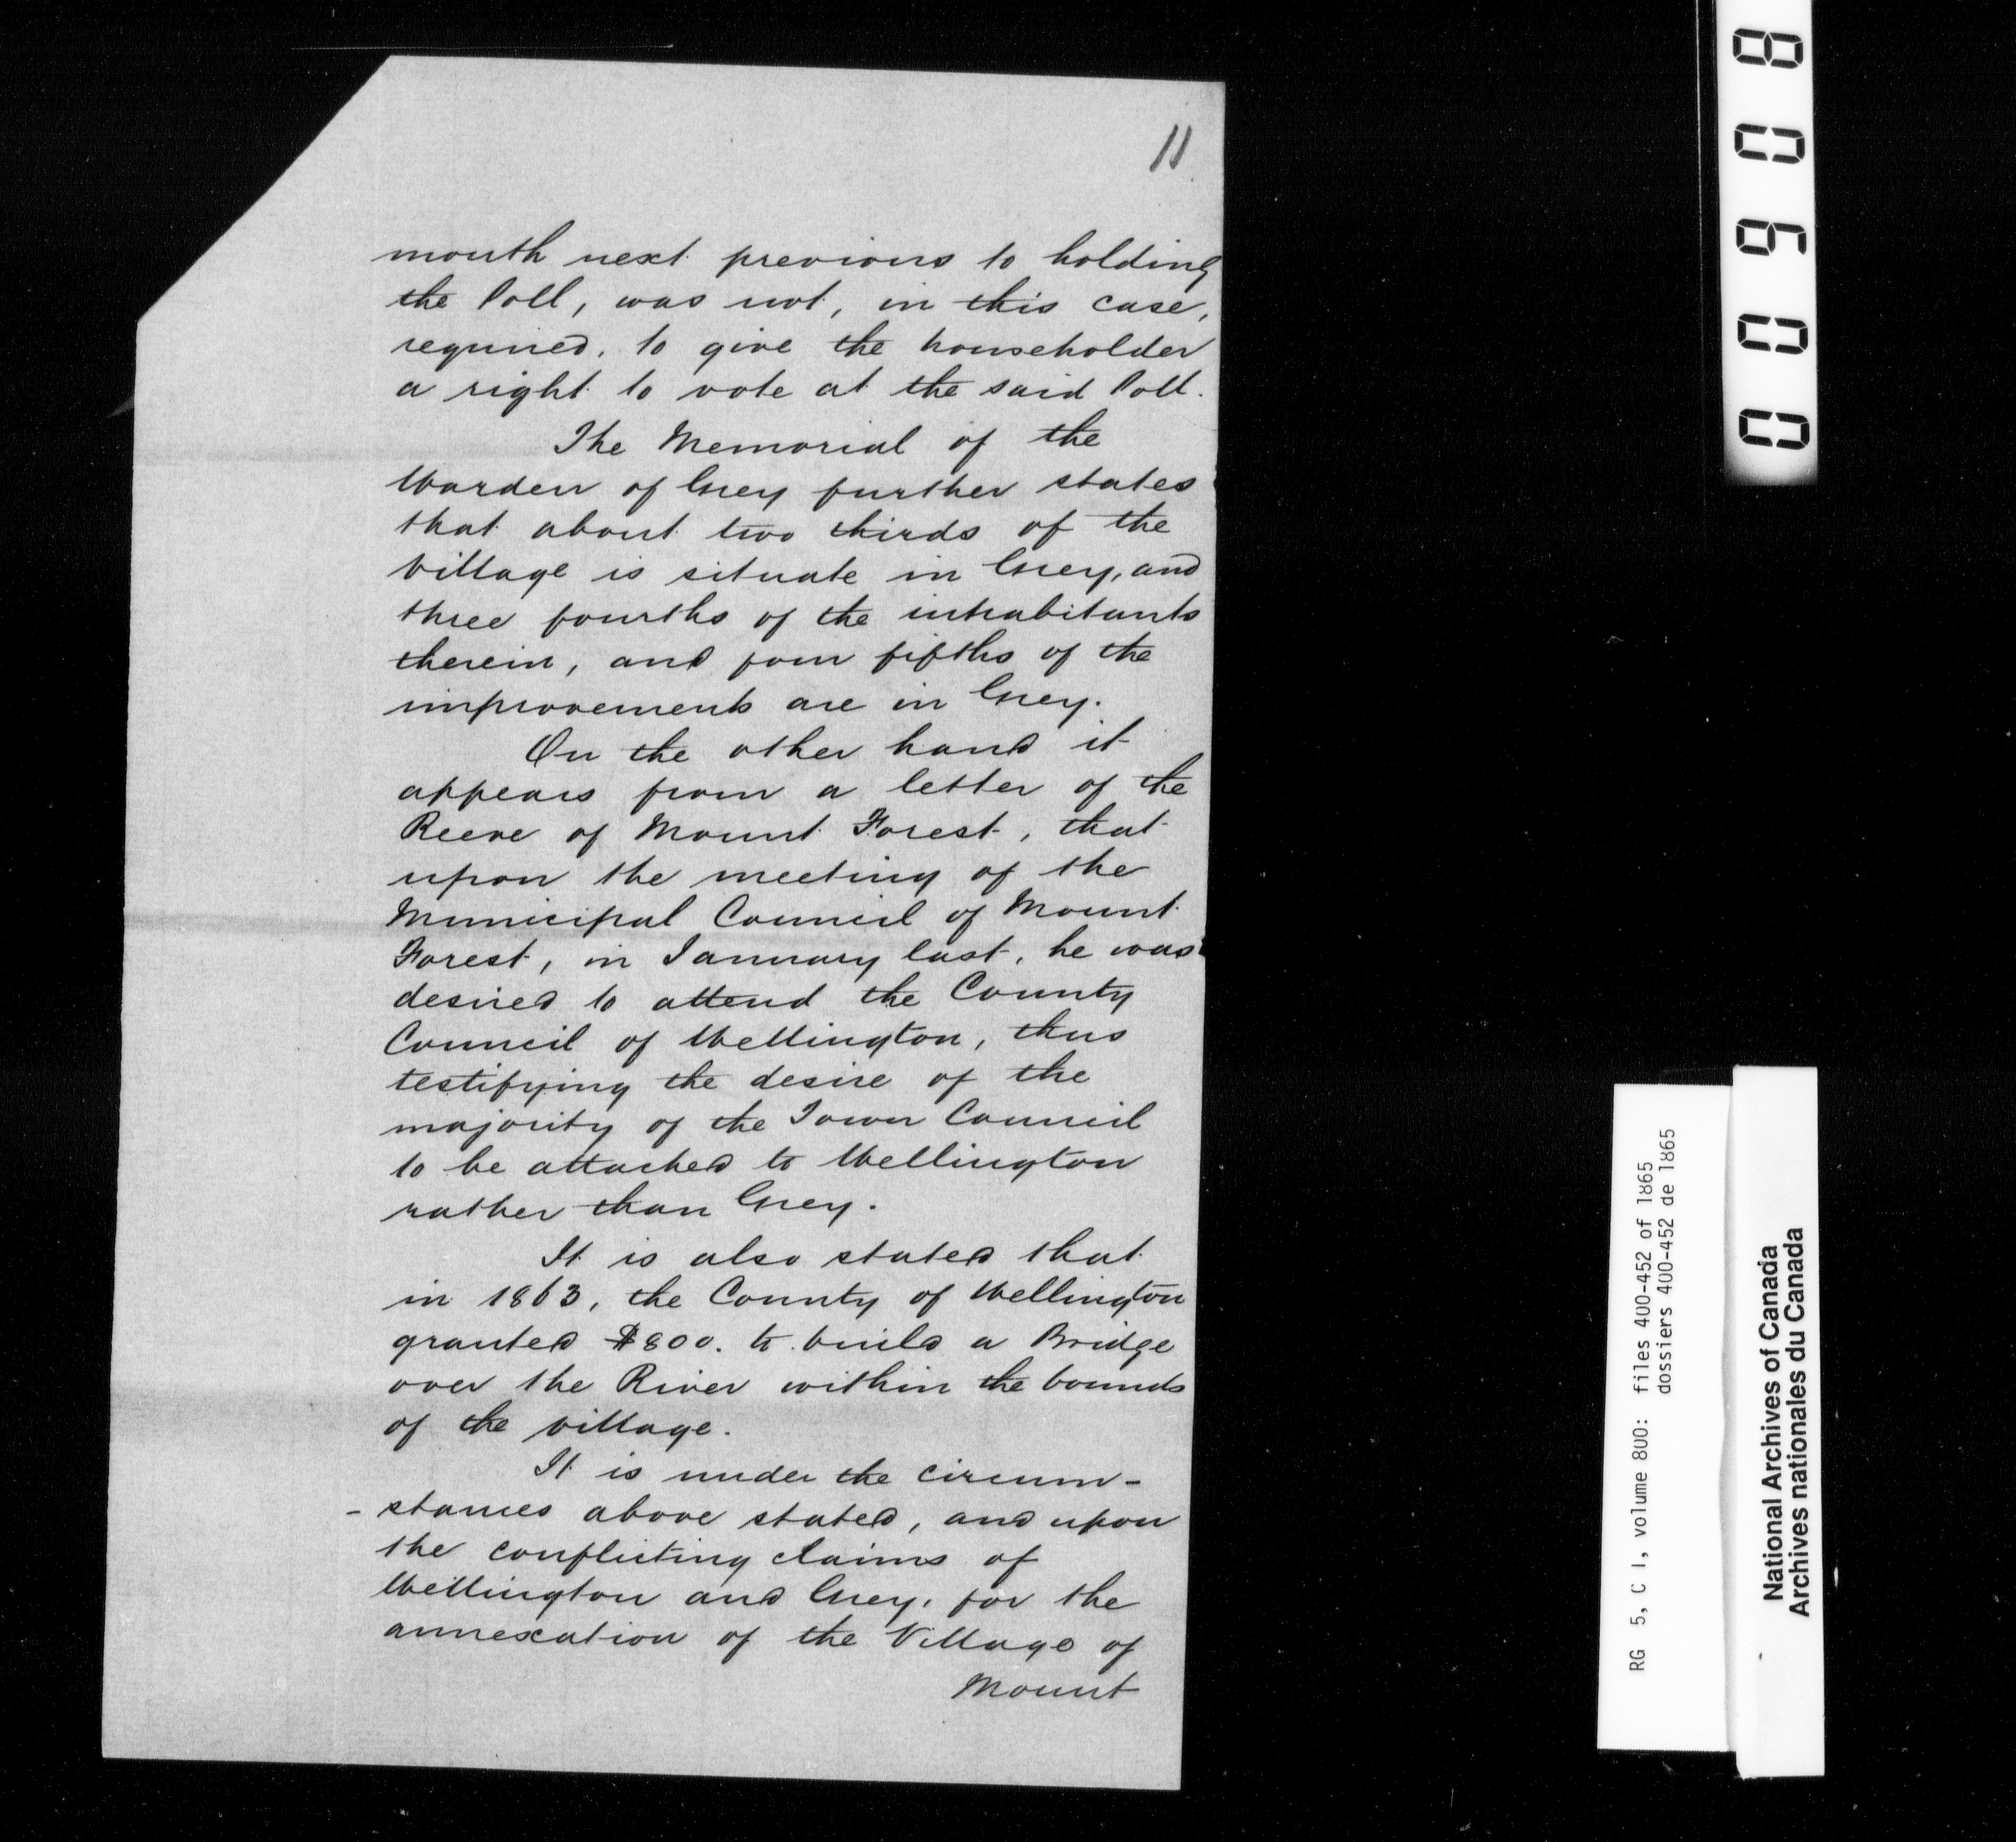 11
month next previous to holding
the Poll, was not, in this case,
required, to give the householder
a right to vote at the said Poll.
The Memorial of the
Warden of Grey further states
that about two thirds of the
Village is situate in Grey, and
three fourths of the inhabitants
therein, and four fifths of the
improvements are in Grey.
On the other hand it
appears from a letter of the
Reeve of Mount Forest, that
upon the meeting of the
Municipal Council of Mount
Forest, in January last, he was
desired to attend the County
Council of Wellington, thus
testifying the desire of the
majority of the Town Council
to be attached to Wellington
rather than Grey.
It is also stated that
in 1863, the County of Wellington
granted $800. to build a Bridge
over the River within the bounds
of the village.
It is under the circum-
-stances above stated, and upon
the conflicting claims of
Wellington and Grey, for the
annexation of the Village of
Mount
000908
RG 5, C 1, volume 800: files 400-452 of 1865
dossiers 400-452 de 1865
National Archives of Canada
Archives nationales du Canada